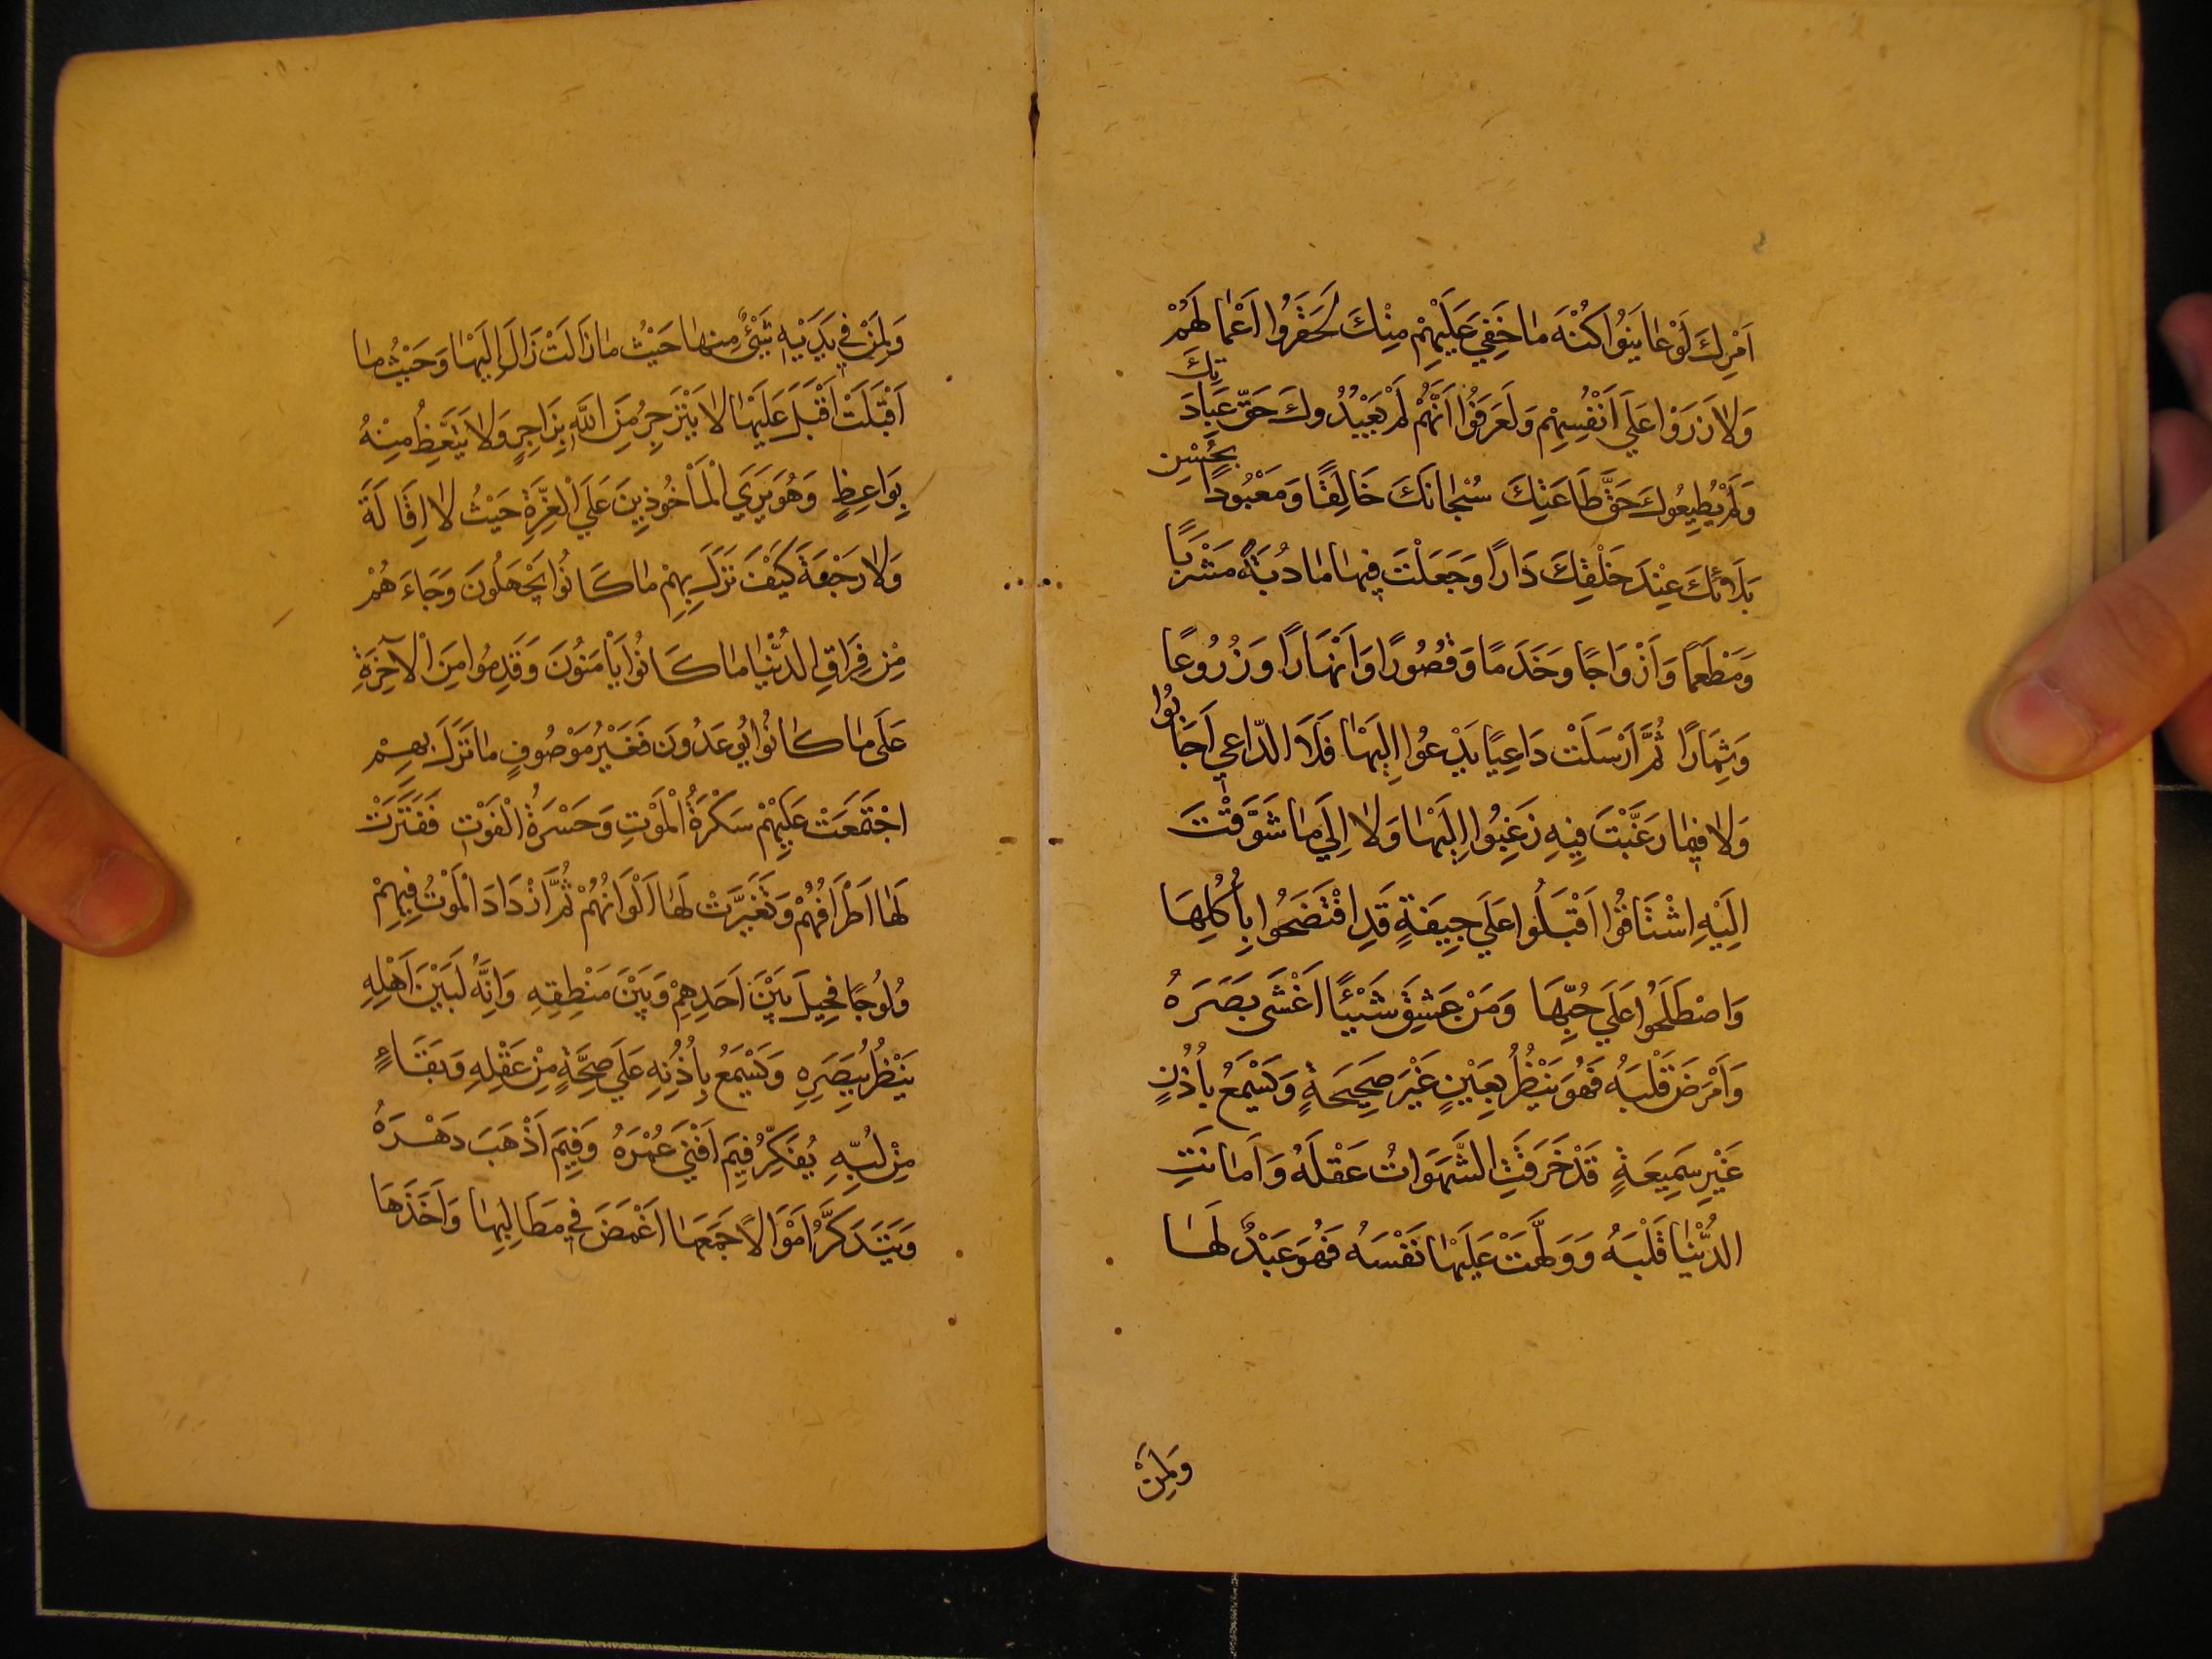 اَمْرِكَ لَوْ عَايَنُوا كُنْهَ مَا خَفِيَ عَلَيْهِمْ مِنْكَ لَحَقَرُوا اَعْمَالَهُمْ
وَلَازَرَوْا عَلَي اَنْفُسِهِمْ وَلَعَرَفُوا اَنَّهُمْ لَمْ يَعْبُدُوكَ حَقَّ عِبَادَتِكَ
وَلَمْ يُطِيعُوكَ حَقَّ طَاعَتِكَ سُبْحَانَكَ خَالِقًا وَمَعْبُودًا بِحُسْنِ
بَلَائِكَ عِنْدَ خَلْقِكَ دَارًا وَجَعَلْتَ فِيهَا مَادُبَةً مَشْرَبًا
وَمَطْعَمًا وَاَزْوَاجًا وَخَدَمًا وَقُصُورًا وَاَنْهَارًا وَزُرُوعًا
وَثِمَارًا ثُمَّ اَرْسَلْتَ دَاعِيًا يَدْعُوا اِلَيْهَا فَلَا الدَّاعِي اَجَابُوا
وَلَا فِيمَا رَغَّبْتَ فِيهِ رَغِبُوا اِلَيْهَا وَلَا اِلَي مَا شَوَّقْتَ
اِلَيْهِ اِشْتَاقُوا اَقْبَلُوا عَلَي جِيفَةٍ قَدِ افْتَضَحُوا بِأُكْلِهَا
وَاصْطَلَحُوا عَلَي حُبِّهَا وَمَنْ عَشِقَ شَيْئًا اَعْشَى بَصَرَهُ
وَاَمْرَضَ قَلْبَهُ فَهُوَ يَنْظُرُ بِعَيْنٍ غَيْرَ صَحِيحَةٍ وَيَسْمَعُ بِاُذُنٍ
غَيْرِ سَمِيعَةٍ قَدْ خَرَقَتِ الشَّهَوَاتُ عَقْلَهُ وَاَمَاتَتِ
الدُّنْيَا قَلْبَهُ وَوَلَّهَتْ عَلَيْهَا نَفْسَهُ فَهُوَ عَبْدٌ لَهَا
وَلِمَنْ
وَلِمَنْ فِي يَدَيْهِ شَيْءٌ مِنهَا حَيْثُ مَا زَالَتْ زَالَ اِلَيْهَا وَحَيْثُ مَا
اَقْبَلَتْ اَقْبَلَ عَلَيْهَا لَا يَنْزَجِرُ مِنَ اللَّهِ بِزَاجِرٍ وَلَا يَتَّعِظُ مِنْهُ
بِوَاعِظٍ وَهُوَ يَرَي الْمَأْخُوذِينَ عَلَي الْغِرَّةِ حَيْثُ لَا اِقَالَةَ
وَلَا رَجْعَةَ كَيْفَ نَزَلَ بِهِمْ مَا كَانُوا يَجْهَلُونَ وَجَاءَهُمْ
مِنْ فِرَاقِ الدُّنْيَا مَا كَانُوا يَاْمَنُونَ وَقَدِمُوا مِنَ الْآخِرَةِ
عَلَى مَا كَانُوا يُوعَدُونَ فَغَيْرُ مَوْصُوفٍ مَا نَزَلَ بِهِمْ
اجْتَمَعَتْ عَلَيْهِمْ سَكْرَةُ الْمَوْتِ وَحَسْرَةُ الْفَوْتِ فَفَتَرَتْ
لَهَا اَطْرَافُهُمْ وَتَغَيَّرَتْ لَهَا اَلْوَانُهُمْ ثُمَّ ازْدَادَ الْمَوْتُ فِيهِمْ
وُلُوجًا فَحِيلَ بَيْنَ اَحَدِهِمْ وَبَيْنَ مَنْطِقِهِ وَاِنَّهُ لَبَيْنَ اَهْلِهِ
يَنْظُرُ بِبَصَرِهِ وَيَسْمَعُ بِاُذُنِهِ عَلَي صِحَّةٍ مِنْ عَقْلِهِ وَبَقَاءٍ
مِنْ لُبِّهِ يُفَكِّرُ فِيمَ اَفْنَي عُمْرَهُ وَفِيمَ اَذْهَبَ دَهْرَهُ
وَيَتَذَكَّرُ اَمْوَالًا جَمَعَهَا اَغْمَضَ فِي مَطَالِبِهَا وَاَخَذَهَا